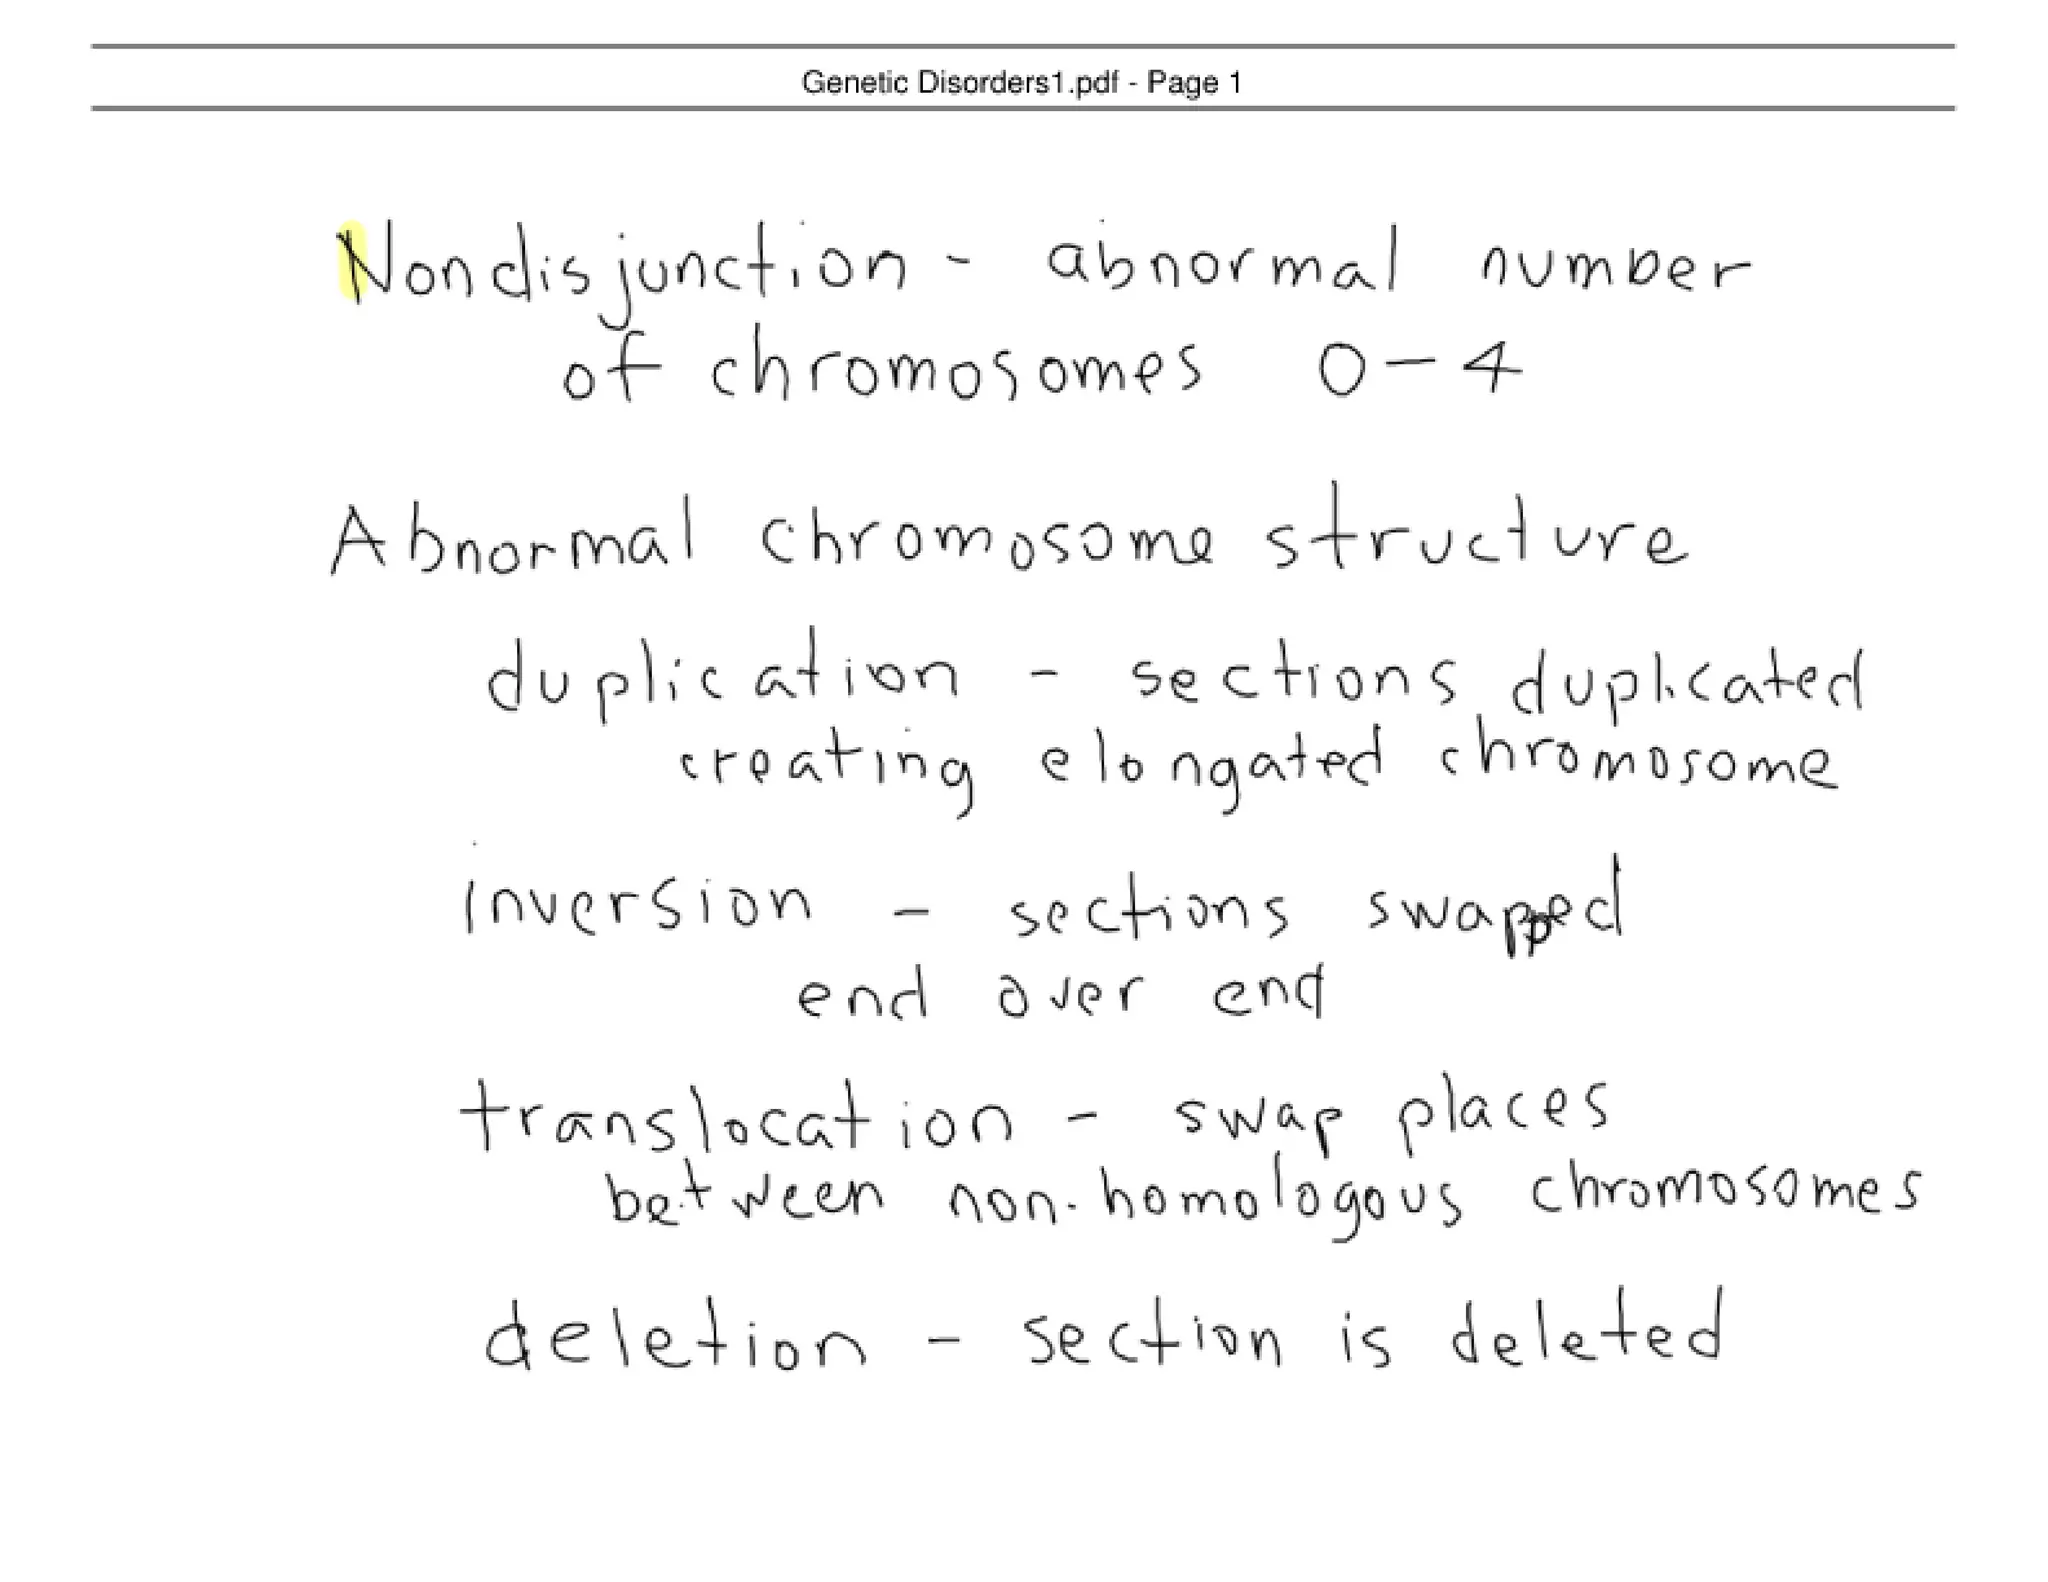 Genetic Disorders1.pdf - Page 1
Nondisjunction - abnormal number
of chromosomes 0-4
Abnormal chromosome structure
duplication - sections duplicated
creating elongated chromosome
inversion - sections swapped
end over end
translocation - swap places
between non-homologous chromosomes
deletion - section is deleted